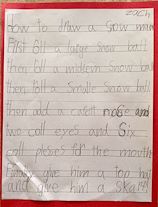 Zach
How to draw a snow man
First Roll a large snow ball
then Roll a midem snow ball
then Roll a Smalle snow ball
then add a carett noGie and
two coll eyes and Six
coll pieses for the mouth
Finaly give him a top hat
and give him a skarf